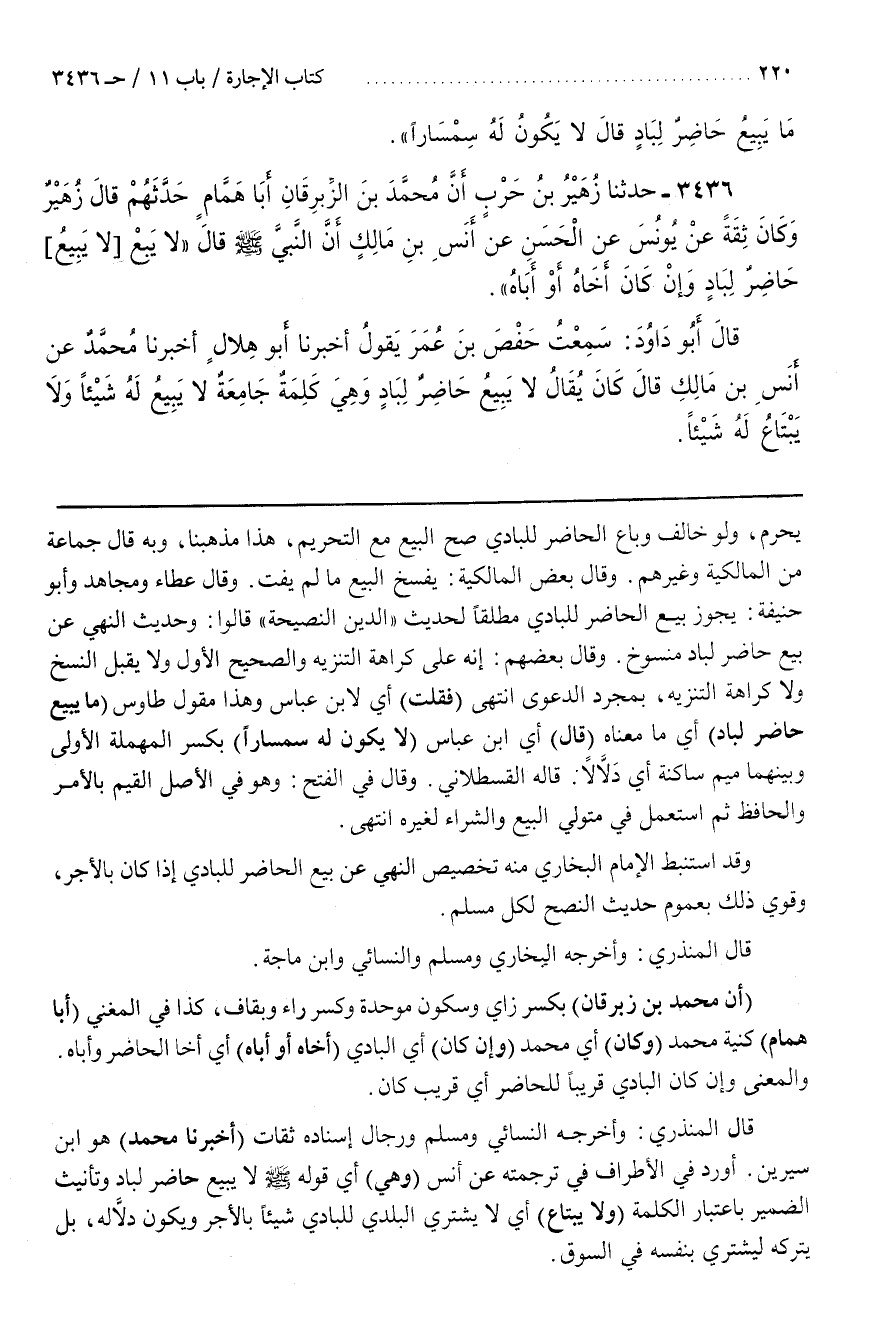 ٢٢٠ ............................................. كتاب الإجارة / باب ١١ / حـ ٣٤٣٦
مَا يَبِيعُ حَاضِرٌ لِبَادٍ قالَ لا يَكُونُ لَهُ سِمْسَاراً».
٣٤٣٦ ـ حدثنا زُهَيْرُ بنُ حَرْبٍ أَنَّ مُحمَّدَ بنَ الزِّبرِقَانِ أَبَا هَمَّامٍ حَدَّثَهُمْ قالَ زُهَيْرٌ
وَكَانَ ثِقَةً عنْ يُونُسَ عن الْحَسَنِ عن أنَسِ بنِ مَالِكٍ أنَّ النَّبيَّ ﷺ قالَ «لا يَبِعْ [لا يَبِيعُ]
حَاضِرٌ لِبَادٍ وَإنْ كَانَ أَخَاهُ أوْ أَبَاهُ».
قالَ أَبُو دَاوُدَ: سَمِعْتُ حَفْصَ بنَ عُمَرَ يَقولُ أخبرنا أَبو هِلالٍ أخبرنا مُحمَّدٌ عن
أَنَسِ بن مَالِكِ قالَ كَانَ يُقَالُ لا يَبِيعُ حَاضِرٌ لِبَادٍ وَهِيَ كَلِمَةٌ جَامِعَةٌ لا يَبِيعُ لَهُ شَيْئاً وَلَا
يَبْتَاعُ لَهُ شَيْئاً.
يحرم، ولو خالف وباع الحاضر للبادي صح البيع مع التحريم، هذا مذهبنا، وبه قال جماعة
من المالكية وغيرهم. وقال بعض المالكية: يفسخ البيع ما لم يفت. وقال عطاء ومجاهد وأبو
حنيفة: يجوز بيع الحاضر للبادي مطلقاً لحديث «الدين النصيحة» قالوا: وحديث النهي عن
بيع حاضر لباد منسوخ. وقال بعضهم: إنه على كراهة التنزيه والصحيح الأول ولا يقبل النسخ
ولا كراهة التنزيه، بمجرد الدعوى انتهى (فقلت) أي لابن عباس وهذا مقول طاوس (ما يبيع
حاضر لباد) أي ما معناه (قال) أي ابن عباس (لا يكون له سمساراً) بكسر المهملة الأولى
وبينهما ميم ساكنة أي دَلَّالًا. قاله القسطلاني. وقال في الفتح: وهو في الأصل القيم بالأمر
والحافظ ثم استعمل في متولي البيع والشراء لغيره انتهى.
وقد استنبط الإمام البخاري منه تخصيص النهي عن بيع الحاضر للبادي إذا كان بالأجر،
وقوي ذلك بعموم حديث النصح لكل مسلم.
قال المنذري: وأخرجه البخاري ومسلم والنسائي وابن ماجة.
(أن محمد بن زبرقان) بكسر زاي وسكون موحدة وكسر راء وبقاف، كذا في المغني (أبا
همام) كنية محمد (وكان) أي محمد (وإن كان) أي البادي (أخاه أو أباه) أي أخا الحاضر وأباه.
والمعنى وإن كان البادي قريباً للحاضر أي قريب كان.
قال المنذري: وأخرجه النسائي ومسلم ورجال إسناده ثقات (أخبرنا محمد) هو ابن
سيرين. أورد في الأطراف في ترجمته عن أنس (وهي) أي قوله ﷺ لا يبيع حاضر لباد وتأنيث
الضمير باعتبار الكلمة (ولا يبتاع) أي لا يشتري البلدي للبادي شيئاً بالأجر ويكون دلَّاله، بل
يتركه ليشتري بنفسه في السوق.